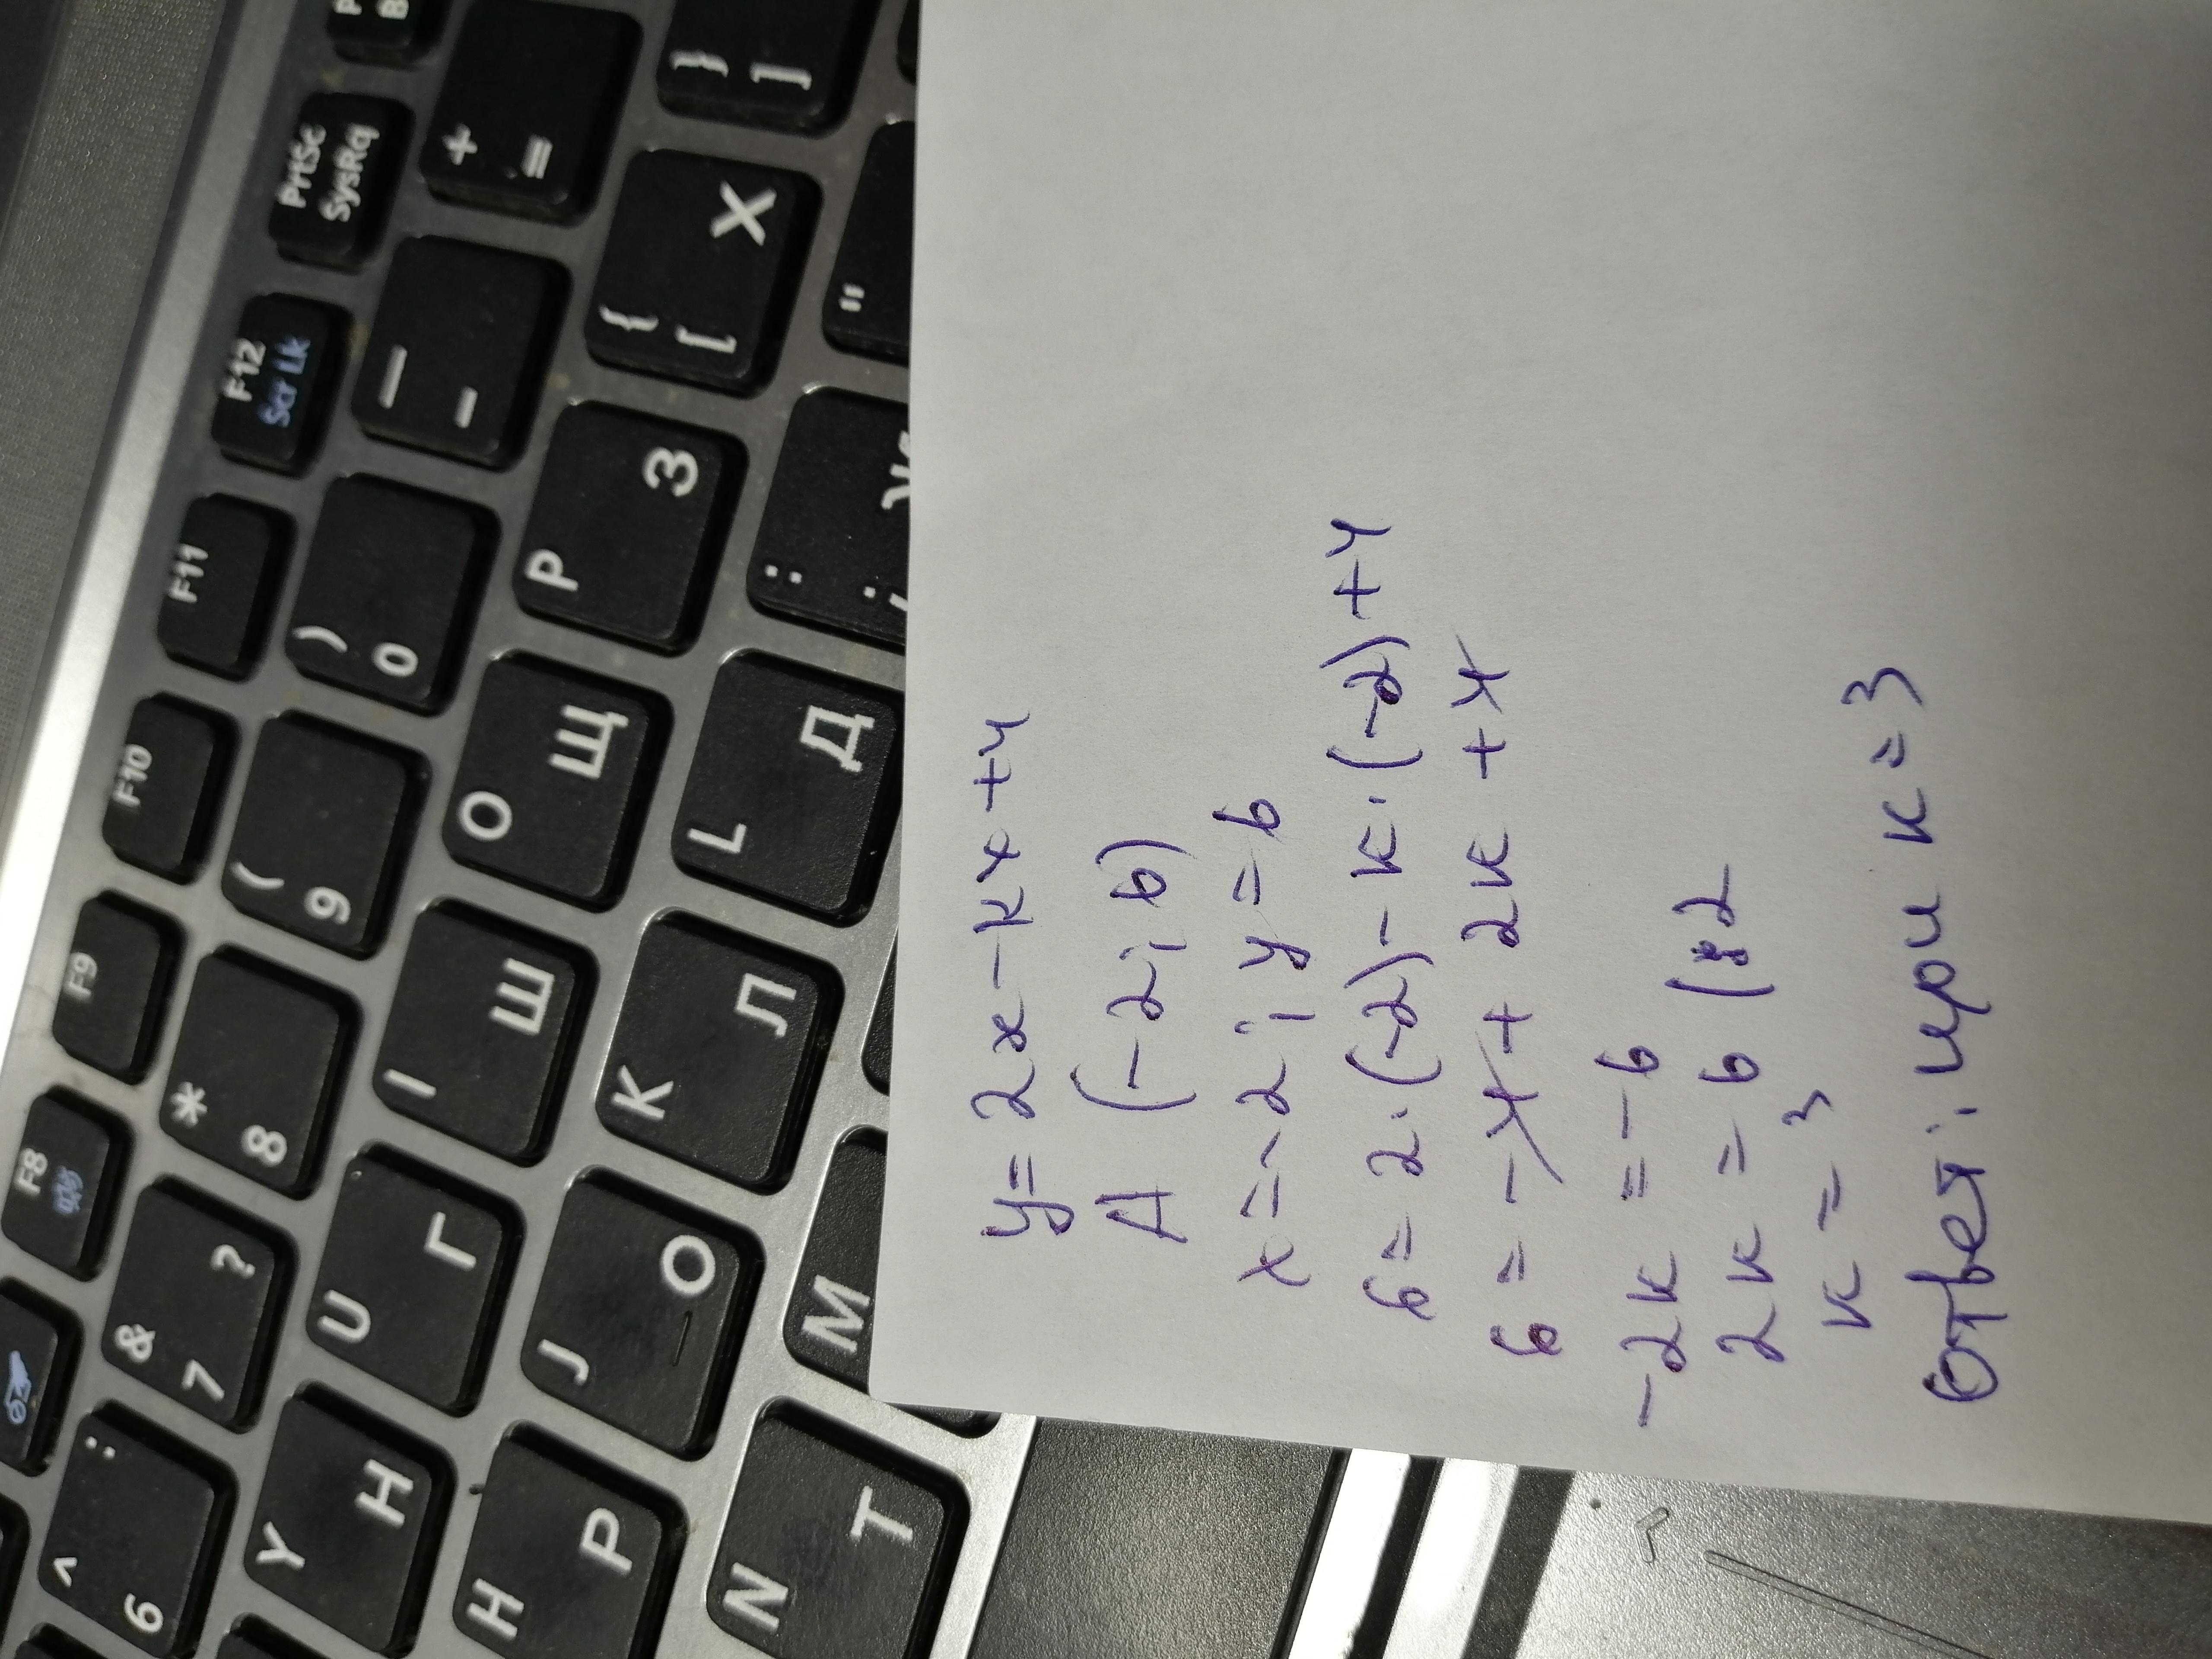 y = 2x - kx + 4
A (-2; 6)
x = -2; y = 6
6 = 2·(-2) - k·(-2) + 4
6 = -4 + 2k + 4
-2k = -6
2k = 6 |:2
k = 3
Ответ: при k = 3
P
B
PrtSc
SysRq
F12
Scr Lk
F11
F10
F9
F8
+
=
—
-
)
0
(
9
*
8
&
7
?
^
6
:
}
]
{
[
Х
P
З
O
Щ
I
Ш
U
Г
Y
Н
"
:
;
Ж
L
Д
K
Л
J
О
H
Р
M
N
Т